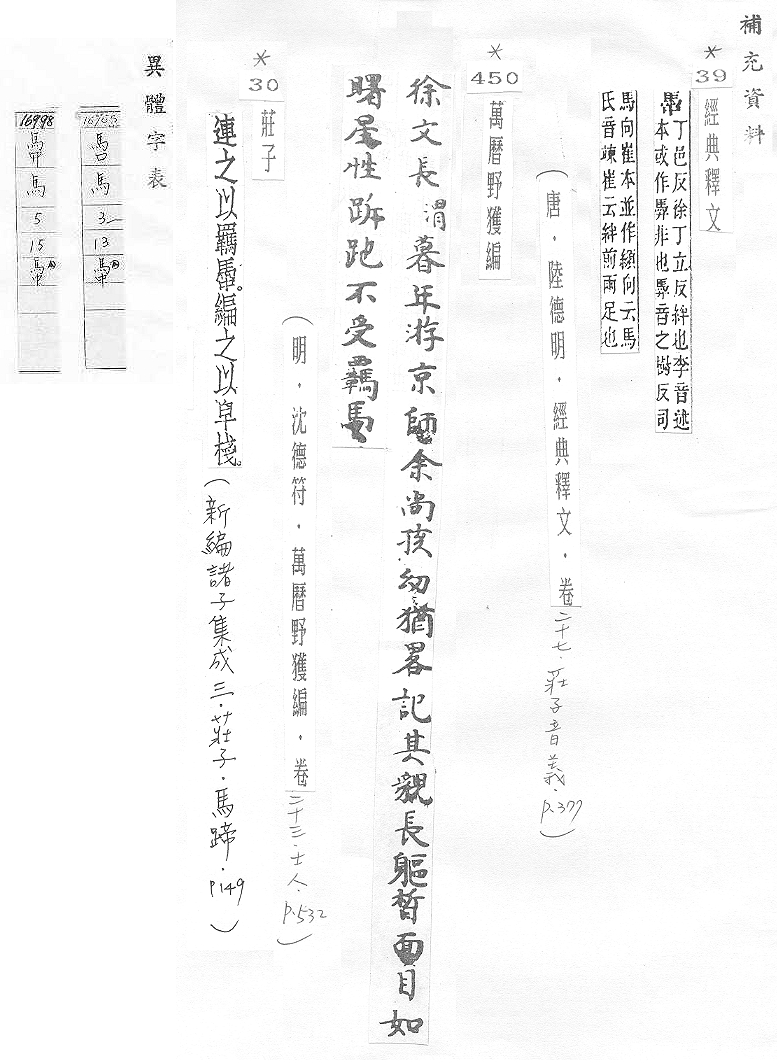 補充資料
*
39
經典釋文
馽丁邑反徐丁立反絆也李音述
本或作馵非也馵音之樹反司
馬向崔本並作纇向云馬
氏音竦崔云絆前兩足也
(唐．陸德明．經典釋文．卷二十七．莊子音義．p.377)
*
450
萬曆野獲編
徐文長渭暮年游京師余尚孩幼猶畧記其貌長軀皙面目如
曙星性跅跑不受羈馽
(明．沈德符．萬曆野獲編．卷二十三．士人．p.532)
*
30
莊子
連之以羈馽。編之以皁棧。(新編諸子集成三．莊子．馬蹄．p149)
異體字表
馬
3
13
16998
馬
5
15